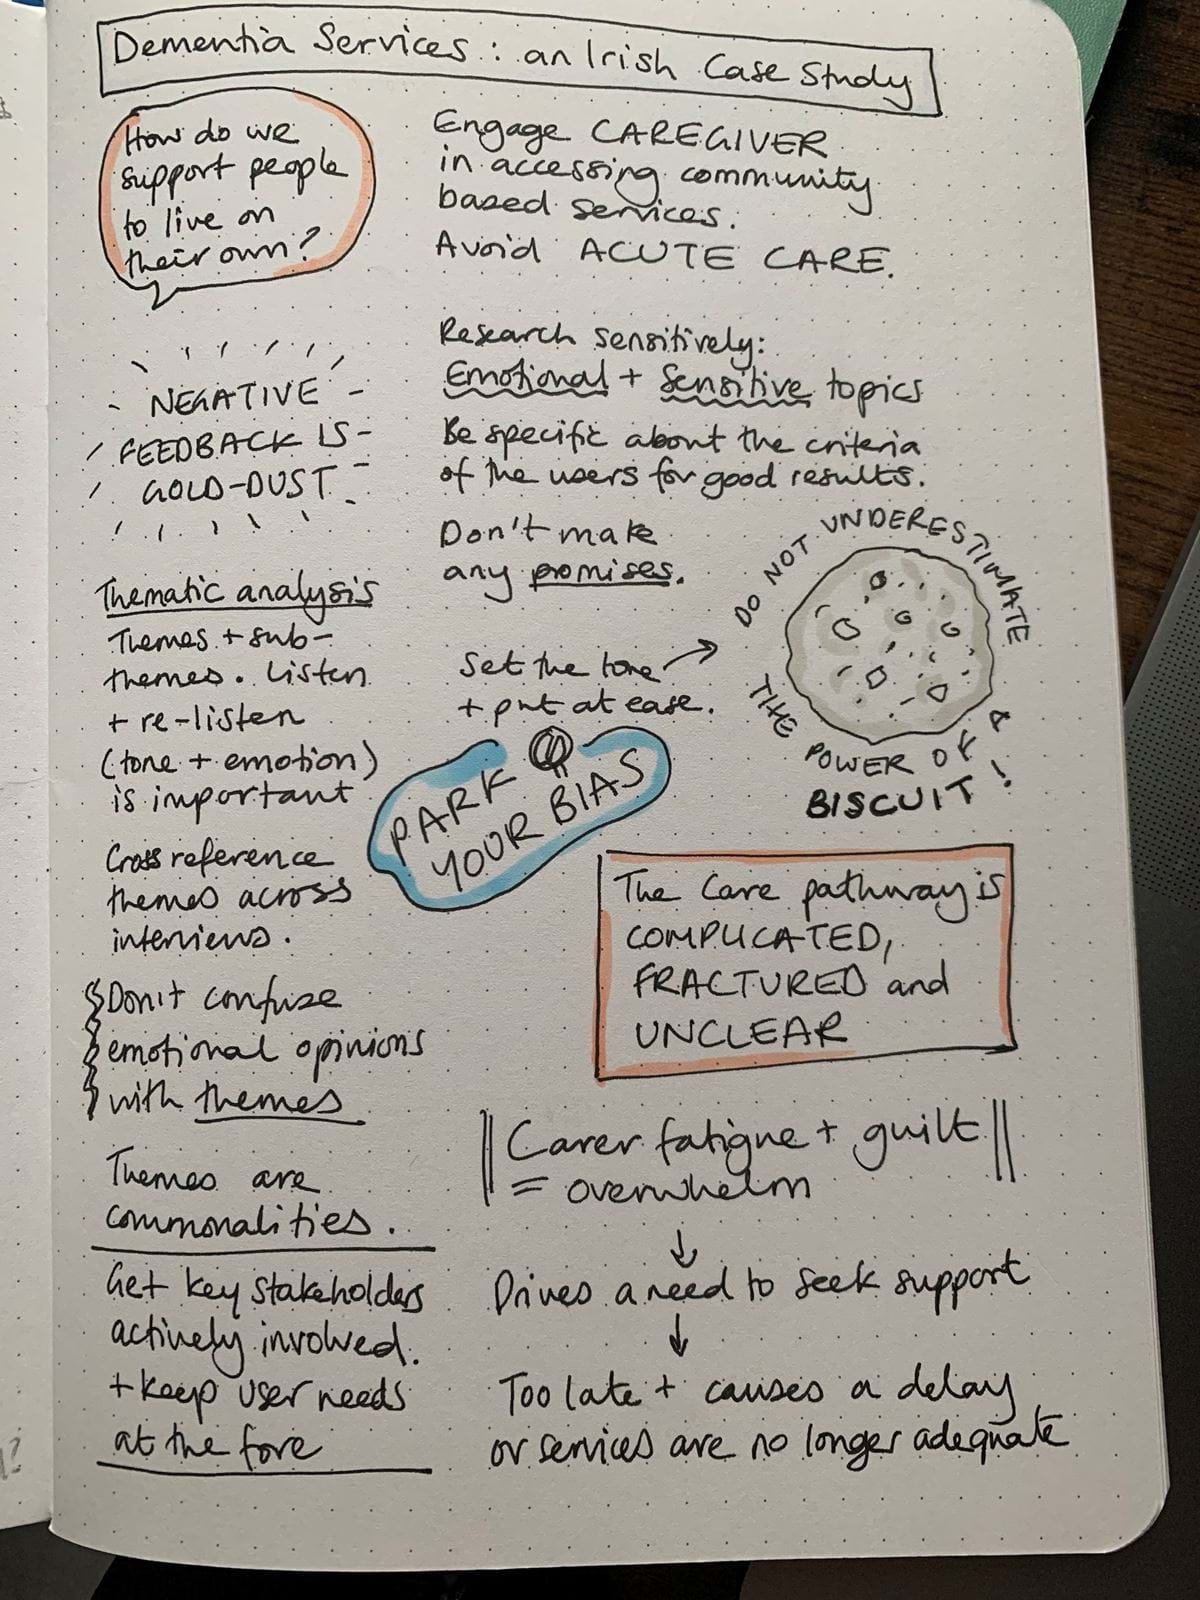 Dementia Services: an Irish Case Study
How do we
support people
to live on
their own?
Engage CAREGIVER
in accessing community
based services.
Avoid ACUTE CARE.
NEGATIVE
FEEDBACK IS
GOLD-DUST
Research sensitively:
Emotional + Sensitive topics
Be specific about the criteria
of the users for good results.
Don't make
any promises.
Set the tone
+ put at ease.
DO NOT UNDERESTIMATE
THE POWER OF A
BISCUIT!
PARK
YOUR BIAS
Thematic analysis
Themes + sub-
themes. Listen
+ re-listen
(tone + emotion)
is important
Cross reference
themes across
interviews.
Don't confuse
emotional opinions
with themes
Themes are
commonalities.
Get key stakeholders
actively involved.
+ keep user needs
at the fore
The Care pathway is
COMPLICATED,
FRACTURED and
UNCLEAR
Carer fatigue + guilt
= overwhelm
Drives a need to seek support
Too late + causes a delay
or services are no longer adequate